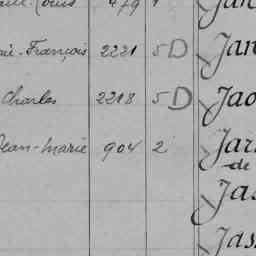 Louis 479 1
François 2221 5 D Jan
Charles 2218 5 D Jao
Jean-Marie 904 2 Jar
de
Jas
Jass